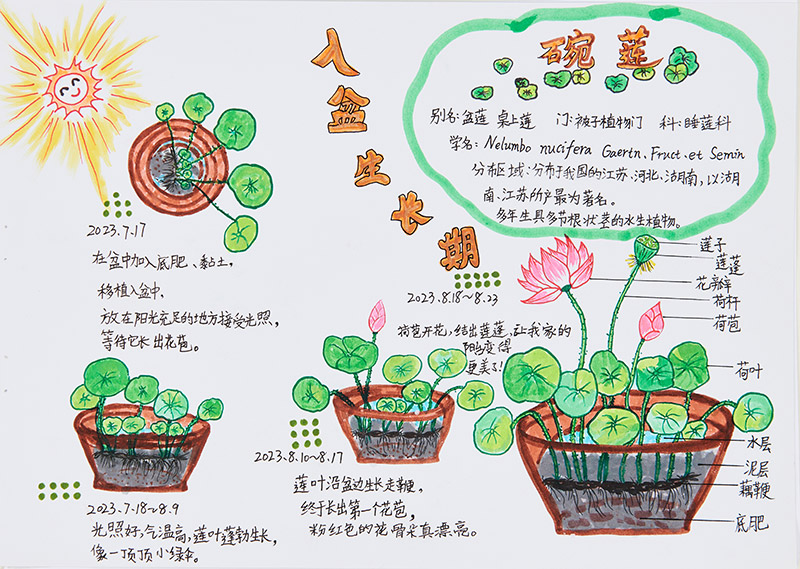 入盆生长期
碗莲
别名:盆莲 桌上莲 门:被子植物门 科:睡莲科
学名:Nelumbo nucifera Gaertn. Fruct. et Semin
分布区域:分布于我国的江苏、河北、湖南,以湖
南、江苏所产最为著名。
多年生具多节根状茎的水生植物。
2023.7.17
在盆中加入底肥、黏土,
移植入盆中,
放在阳光充足的地方接受光照,
等待它长出花苞。
2023.7.18~8.9
光照好,气温高,莲叶蓬勃生长,
像一顶顶小绿伞。
2023.8.10~8.17
莲叶沿盆边生长走鞭,
终于长出第一个花苞,
粉红色的花骨朵真漂亮。
2023.8.18~8.23
荷苞开花,结出莲蓬,让我家的
阳台变得
更美了!
莲子
莲蓬
花瓣
荷杆
荷苞
荷叶
水层
泥层
藕鞭
底肥